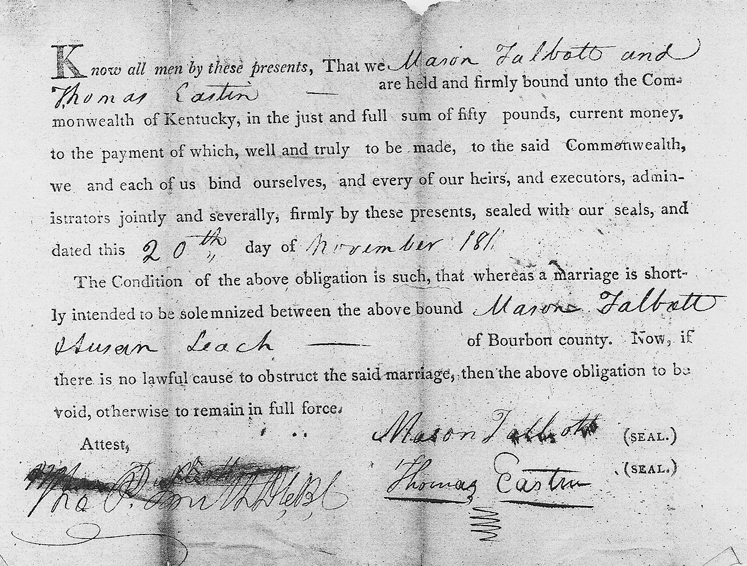 Know all men by these presents, That we Mason Talbott and
Thomas Eastin — are held and firmly bound unto the Com-
monwealth of Kentucky, in the just and full sum of fifty pounds, current money,
to the payment of which, well and truly to be made, to the said Commonwealth,
we and each of us bind ourselves, and every of our heirs, and executors, admin-
istrators jointly and severally, firmly by these presents, sealed with our seals, and
dated this 20th day of November 181
The Condition of the above obligation is such, that whereas a marriage is short-
ly intended to be solemnized between the above bound Mason Talbott
& Susan Leach — of Bourbon county. Now, if
there is no lawful cause to obstruct the said marriage, then the above obligation to be
void, otherwise to remain in full force.
Attest,
Mason Talbott (SEAL.)
Thomas Eastin (SEAL.)
P. Smith